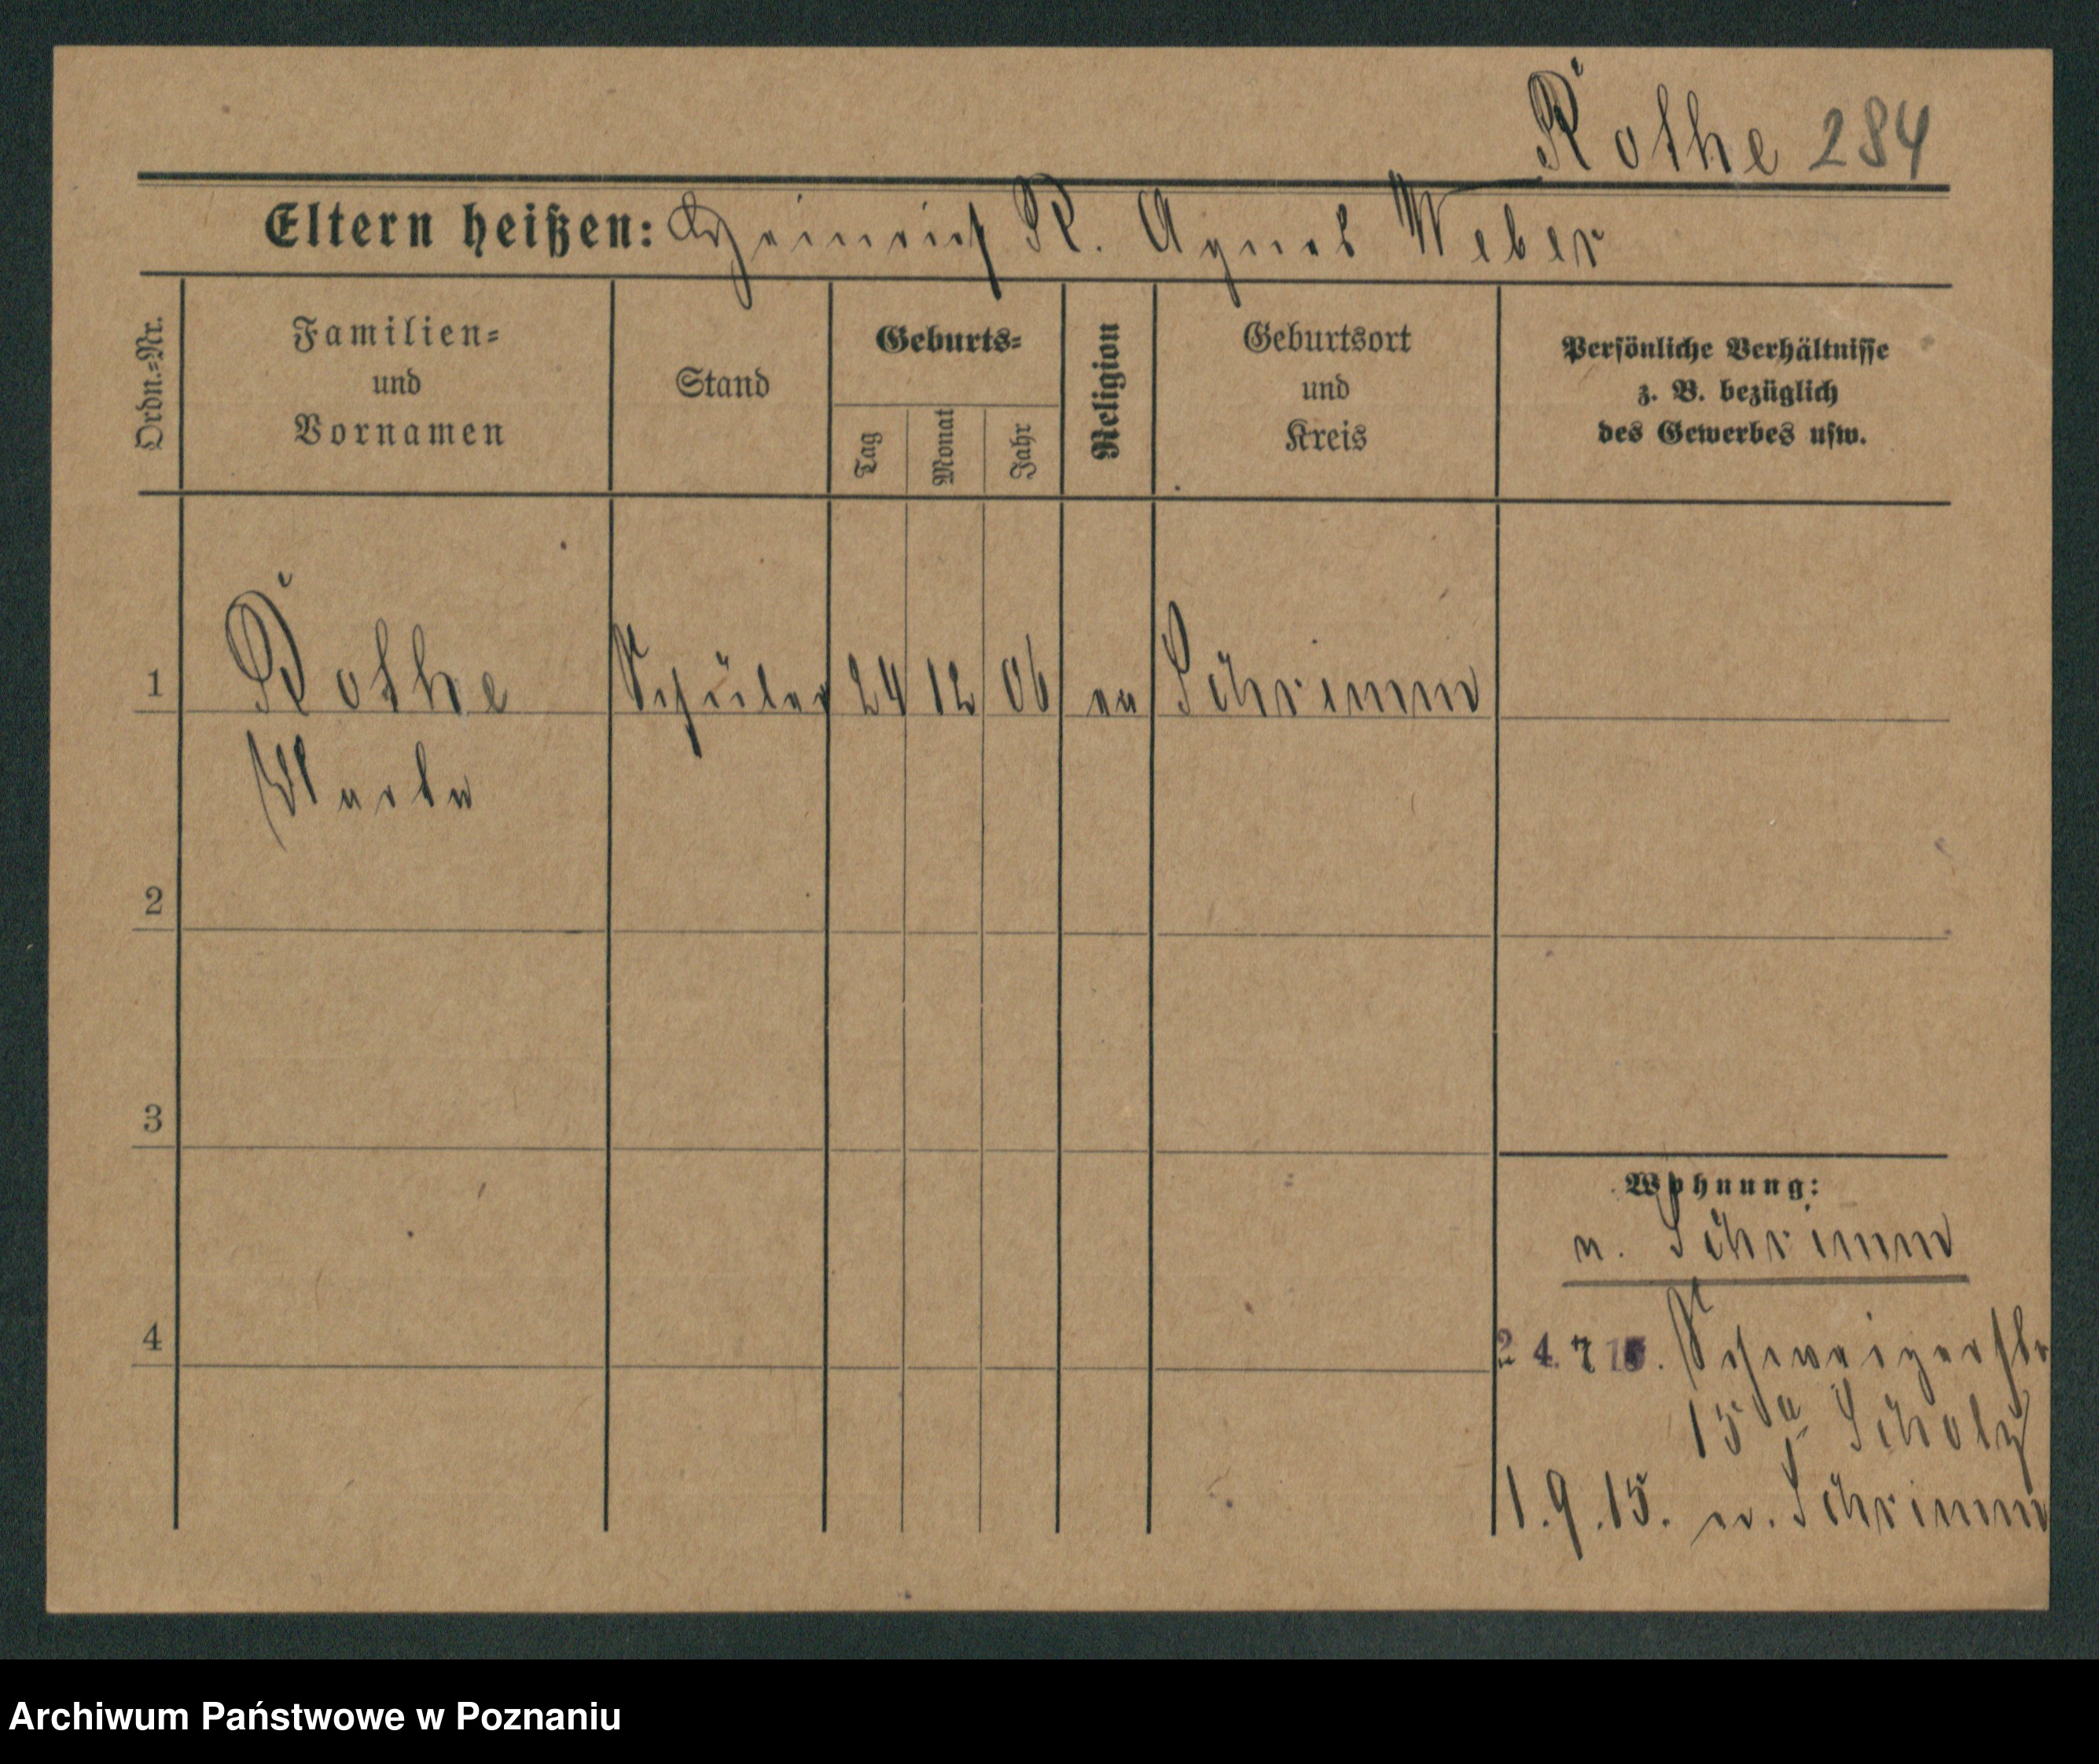 Rothe 284
Eltern heißen: Heinrich R. Agnes Weber
Ordn.=Nr.
Familien=
und
Vornamen
Stand
Geburts=
Tag
Monat
Jahr
Religion
Geburtsort
und
Kreis
Persönliche Verhältnisse
z. B. bezüglich
des Gewerbes usw.
1 Rothe Schüler 24 12 06 ev Schrimm
2
3
Wohnung:
n. Schrimm
4
24. 7 15. Schweizerstr
15 Scholz
1.9.15. n. Schrimm
Archiwum Państwowe w Poznaniu